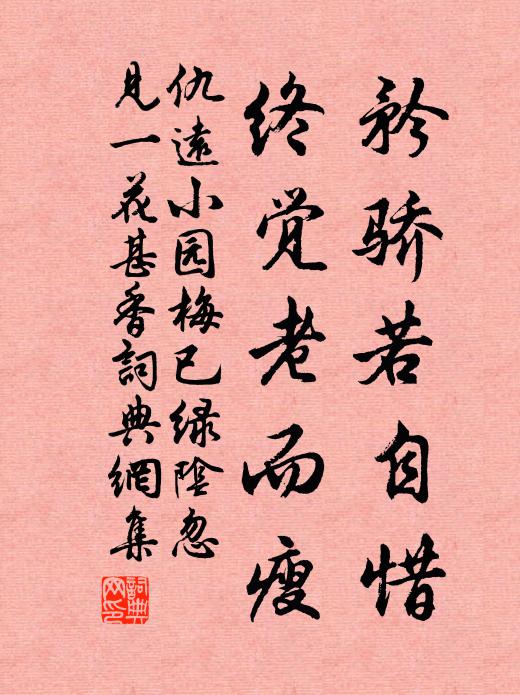 矜骄若自惜
终觉老而瘦
仇远小园梅已绿阴忽
见一花甚香词典网集
词典网印